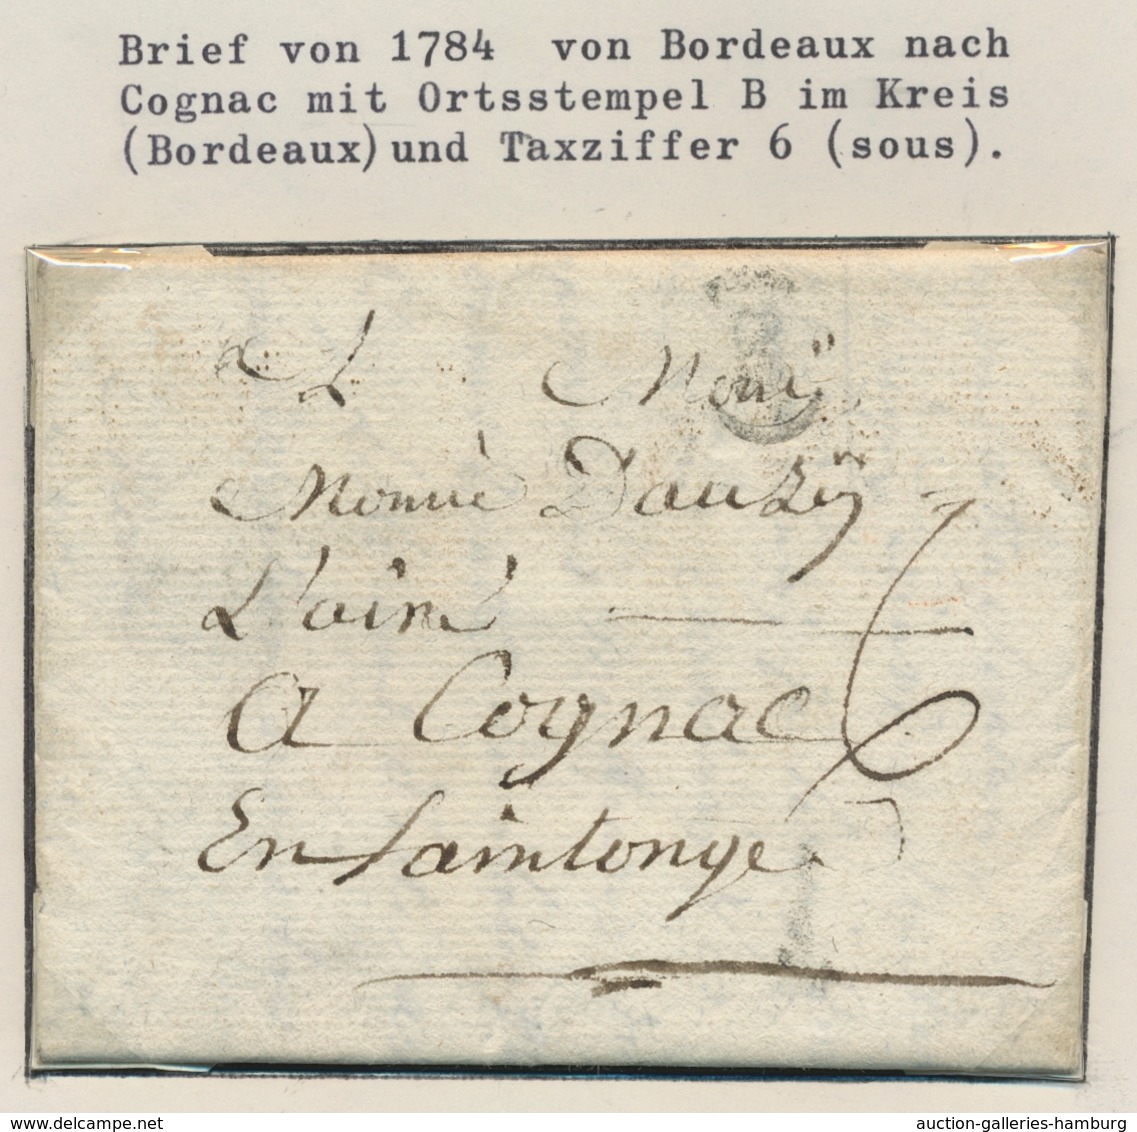 Brief von 1784 von Bordeaux nach
Cognac mit Ortsstempel B im Kreis
(Bordeaux) und Taxziffer 6 (sous).
B
A
L'ainé
6
A Cognac
En Saintonge
delcampe.net
auction-galleries-hamburg